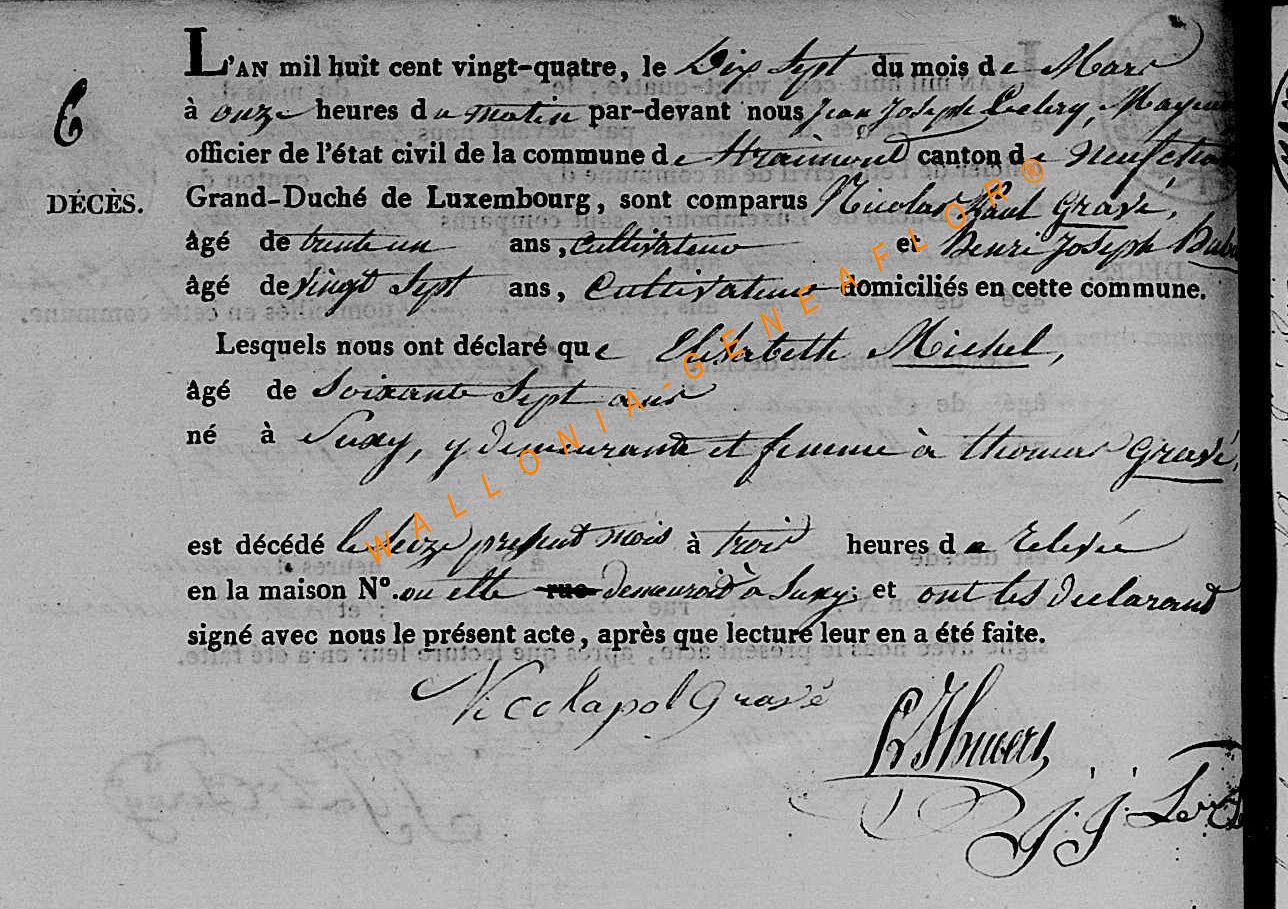 L'AN mil huit cent vingt-quatre, le Dix Sept du mois de Mars
6
à onze heures du matin par-devant nous Jean Joseph Leclery, Mayeur
officier de l'état civil de la commune de Straimont canton de Neufchat
DÉCÈS.
Grand-Duché de Luxembourg, sont comparus Nicolas Paul Gravé,
âgé de trente un ans, cultivateur et Henri Joseph
âgé de vingt Sept ans, Cultivateur domiciliés en cette commune.
Lesquels nous ont déclaré que Elisabette Michel,
âgé de Soixante Sept ans
né à Suxy, y demeurant et femme à thomas Gravé,
est décédé le Seize présent mois à trois heures de relevée
en la maison N°. ou elle rue demeuroit à Suxy; et ont les déclarant
signé avec nous le présent acte, après que lecture leur en a été faite.
Nicolapol Gravé
J. J. Lecl
WALLONIA-GENEAFLOR®